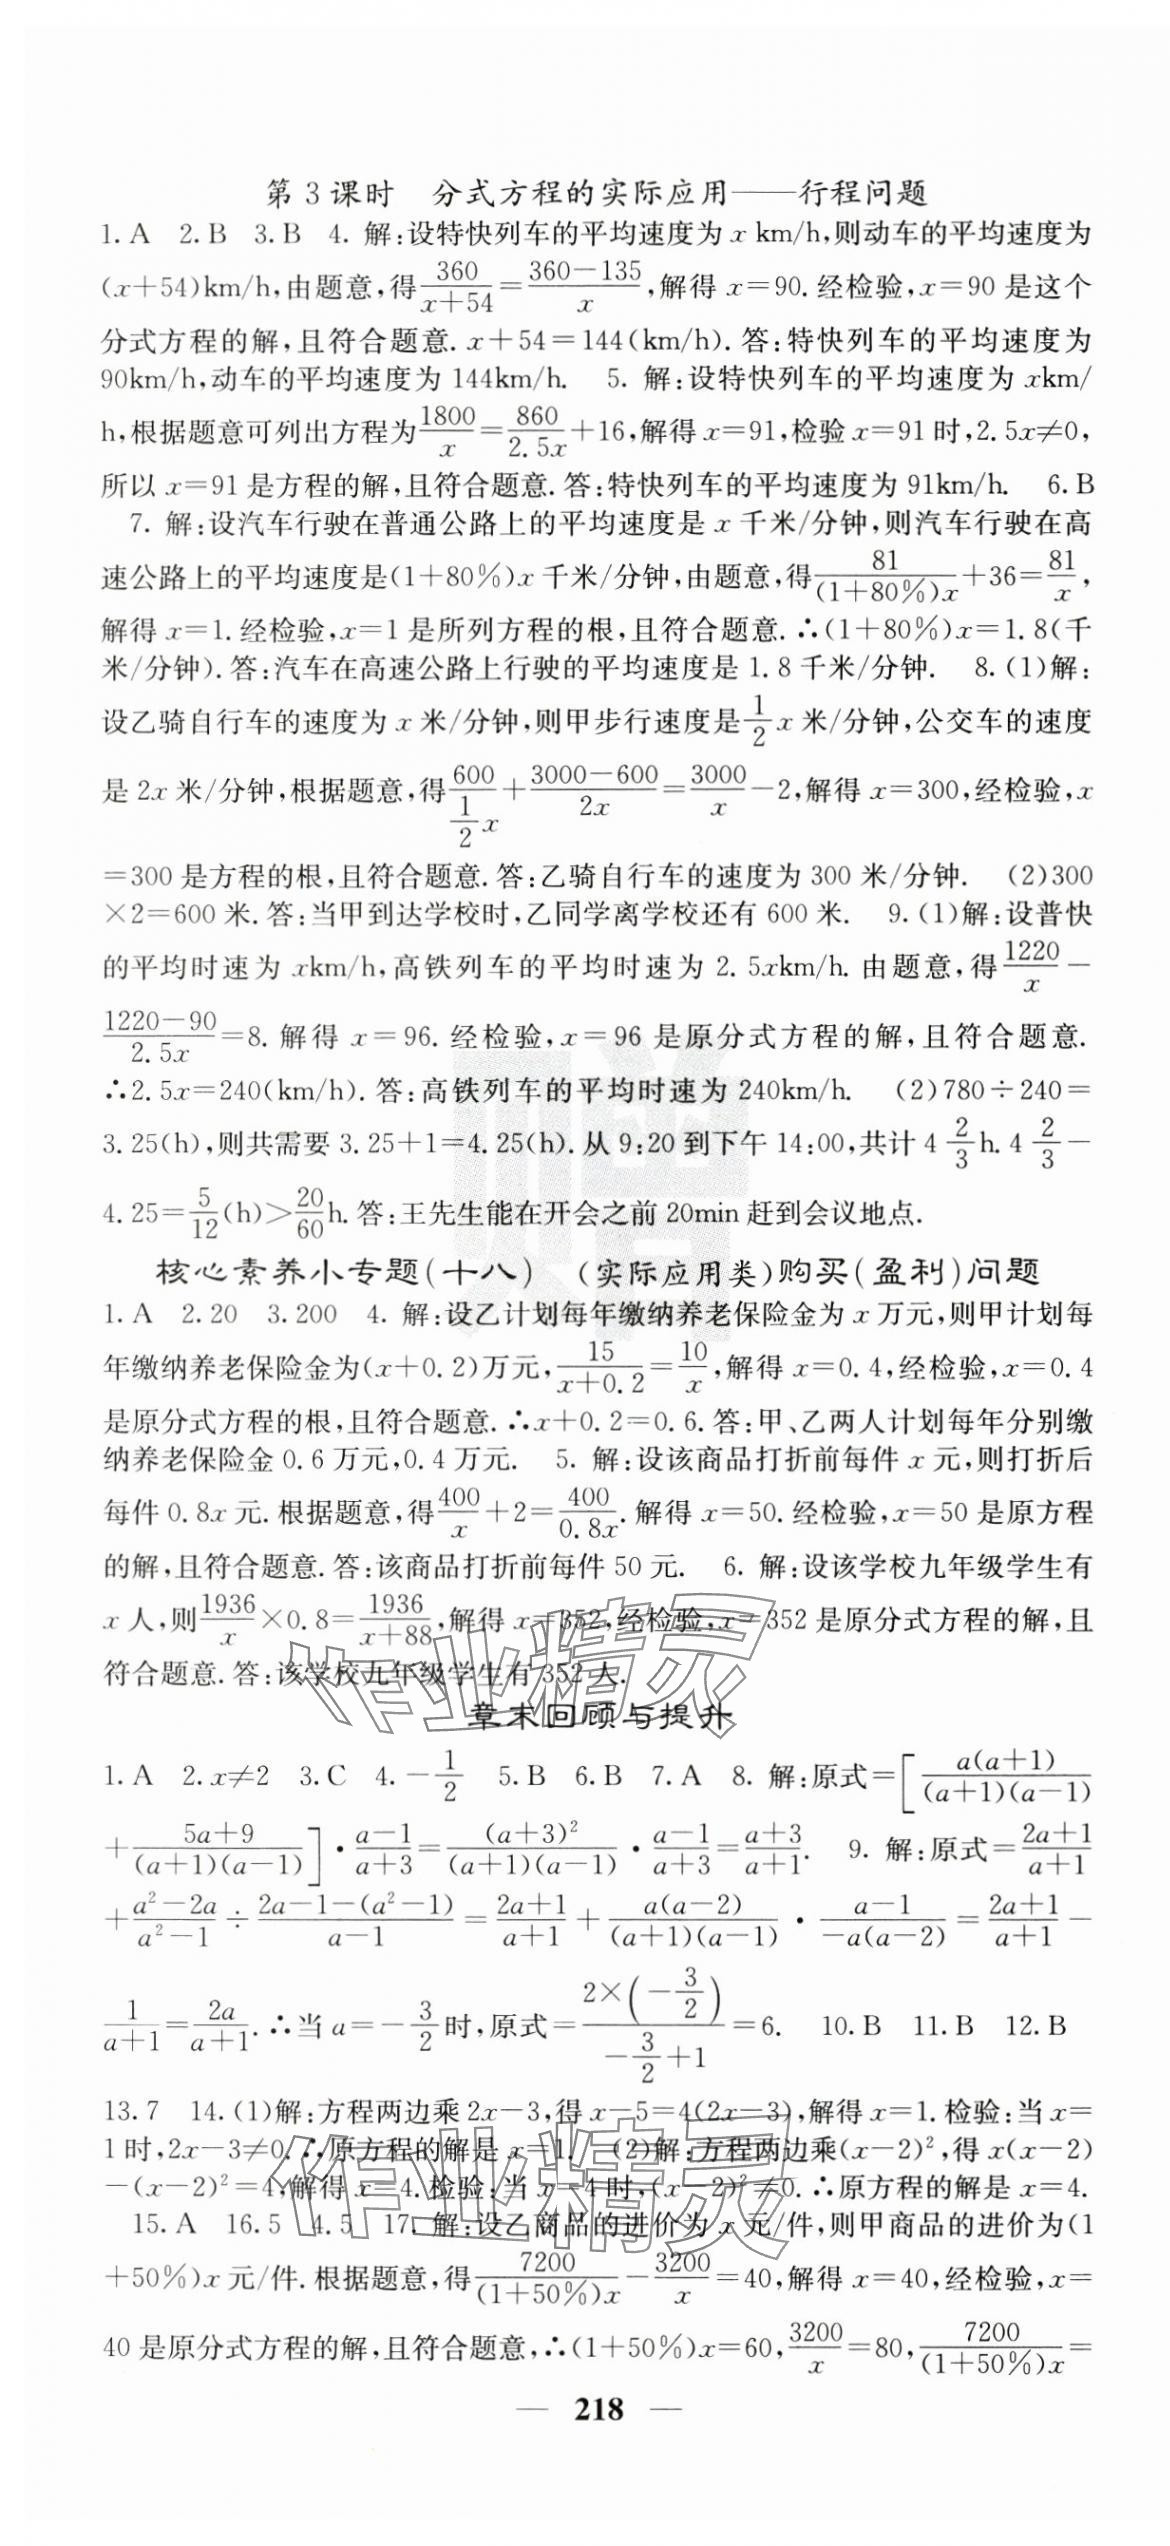 第3课时　分式方程的实际应用——行程问题
1.A　2.B　3.B　4. 解:设特快列车的平均速度为 x km/h,则动车的平均速度为
(x+54)km/h,由题意,得360/(x+54)=(360-135)/x,解得 x=90.经检验,x=90 是这个
分式方程的解,且符合题意. x+54=144(km/h).答:特快列车的平均速度为
90km/h,动车的平均速度为 144km/h.　5. 解:设特快列车的平均速度为 xkm/
h,根据题意可列出方程为1800/x=860/2.5x+16,解得 x=91,检验 x=91 时,2.5x≠0,
所以 x=91 是方程的解,且符合题意.答:特快列车的平均速度为 91km/h.　6.B
7. 解:设汽车行驶在普通公路上的平均速度是 x 千米/分钟,则汽车行驶在高
速公路上的平均速度是(1+80%)x 千米/分钟,由题意,得81/(1+80%)x+36=81/x,
解得 x=1.经检验,x=1 是所列方程的根,且符合题意.∴(1+80%)x=1.8(千
米/分钟).答:汽车在高速公路上行驶的平均速度是 1.8 千米/分钟.　8.(1)解:
设乙骑自行车的速度为 x 米/分钟,则甲步行速度是1/2x 米/分钟,公交车的速度
是 2x 米/分钟,根据题意,得600/(1/2x)+(3000-600)/2x=3000/x-2,解得 x=300,经检验,x
=300 是方程的根,且符合题意.答:乙骑自行车的速度为 300 米/分钟.　(2)300
×2=600 米.答:当甲到达学校时,乙同学离学校还有 600 米.　9.(1)解:设普快
的平均时速为 xkm/h,高铁列车的平均时速为 2.5xkm/h.由题意,得1220/x-
(1220-90)/2.5x=8.解得 x=96.经检验,x=96 是原分式方程的解,且符合题意.
∴2.5x=240(km/h).答:高铁列车的平均时速为 240km/h.　(2)780÷240=
3.25(h),则共需要 3.25+1=4.25(h).从 9:20 到下午 14:00,共计 4 2/3 h.4 2/3-
4.25=5/12(h)>20/60h.答:王先生能在开会之前 20min 赶到会议地点.
核心素养小专题(十八)　(实际应用类)购买(盈利)问题
1.A　2.20　3.200　4. 解:设乙计划每年缴纳养老保险金为 x 万元,则甲计划每
年缴纳养老保险金为(x+0.2)万元,15/(x+0.2)=10/x,解得 x=0.4,经检验,x=0.4
是原分式方程的根,且符合题意.∴x+0.2=0.6.答:甲、乙两人计划每年分别缴
纳养老保险金 0.6 万元,0.4 万元.　5. 解:设该商品打折前每件 x 元,则打折后
每件 0.8x 元.根据题意,得400/x+2=400/0.8x.解得 x=50.经检验,x=50 是原方程
的解,且符合题意.答:该商品打折前每件 50 元.　6. 解:设该学校九年级学生有
x 人,则1936/x×0.8=1936/(x+88),解得 x=352,经检验,x=352 是原分式方程的解,且
符合题意.答:该学校九年级学生有 352 人.
章末回顾与提升
1.A　2.x≠2　3.C　4.-1/2　5.B　6.B　7.A　8. 解:原式=[a(a+1)/(a+1)(a-1)
+(5a+9)/(a+1)(a-1)]·(a-1)/(a+3)=(a+3)²/(a+1)(a-1)·(a-1)/(a+3)=(a+3)/(a+1).　9. 解:原式=(2a+1)/(a+1)
+(a²-2a)/(a²-1)÷(2a-1-(a²-1))/(a-1)=(2a+1)/(a+1)+a(a-2)/(a+1)(a-1)·(a-1)/-a(a-2)=(2a+1)/(a+1)-
1/(a+1)=2a/(a+1).∴当 a=-3/2时,原式=(2×(-3/2))/(-3/2+1)=6.　10.B　11.B　12.B
13.7　14.(1)解:方程两边乘 2x-3,得 x-5=4(2x-3),解得 x=1.检验:当 x=
1 时,2x-3≠0.∴原方程的解是 x=1.　(2)解:方程两边乘(x-2)²,得 x(x-2)
-(x-2)²=4,解得 x=4.检验:当 x=4 时,(x-2)²≠0.∴原方程的解是 x=4.
15.A　16.5　4.5　17. 解:设乙商品的进价为 x 元/件,则甲商品的进价为(1
+50%)x 元/件.根据题意,得7200/(1+50%)x-3200/x=40,解得 x=40,经检验,x=
40 是原分式方程的解,且符合题意,∴(1+50%)x=60,3200/x=80,7200/(1+50%)x=
— 218 —
赠
作业精灵
作业精灵